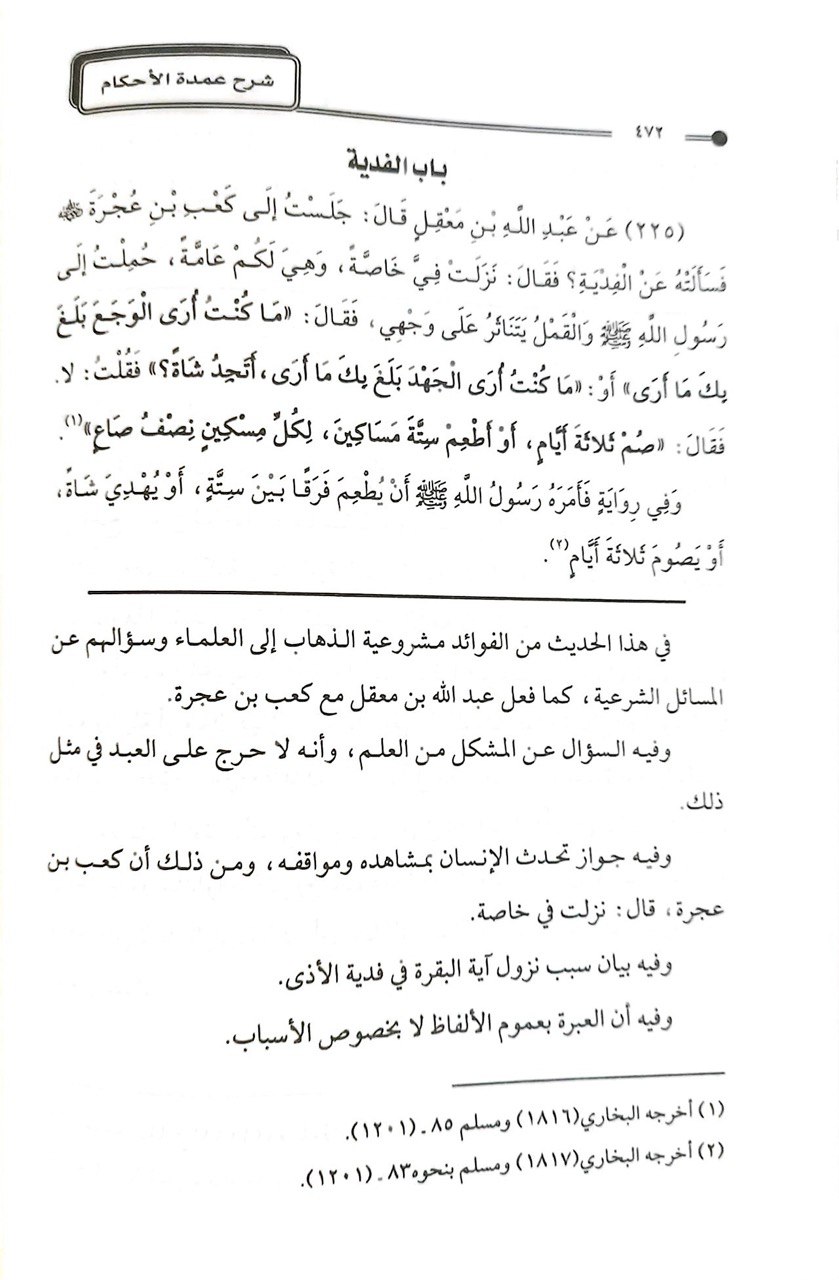 شرح عمدة الأحكام
٤٧٢
باب الفدية
(٢٢٥) عَنْ عَبْدِ اللَّهِ بْنِ مَعْقِلٍ قَالَ: جَلَسْتُ إِلَى كَعْبِ بْنِ عُجْرَةَ ﷺ
فَسَأَلَتْهُ عَنْ الْفِدْيَةِ؟ فَقَالَ: نَزَلَتْ فِيَّ خَاصَّةً، وَهِيَ لَكُمْ عَامَّةً، حُمِلْتُ إِلَى
رَسُولِ اللَّهِ ﷺ وَالْقَمْلُ يَتَنَاثَرُ عَلَى وَجْهِي، فَقَالَ: «مَا كُنْتُ أُرَى الْوَجَعَ بَلَغَ
بِكَ مَا أَرَى» أَوْ: «مَا كُنْتُ أُرَى الْجَهْدَ بَلَغَ بِكَ مَا أَرَى، أَتَجِدُ شَاةً؟» فَقُلْتُ: لا.
فَقَالَ: «صُمْ ثَلاثَةَ أَيَّامٍ، أَوْ أَطْعِمْ سِتَّةَ مَسَاكِينَ، لِكُلِّ مِسْكِينٍ نِصْفُ صَاعٍ»(١).
وَفِي رِوَايَةٍ فَأَمَرَهُ رَسُولُ اللَّهِ ﷺ أَنْ يُطْعِمَ فَرَقًا بَيْنَ سِتَّةٍ، أَوْ يُهْدِيَ شَاةً،
أَوْ يَصُومَ ثَلاثَةَ أَيَّامٍ(٢).
في هذا الحديث من الفوائد مشروعية الذهاب إلى العلماء وسؤالهم عن
المسائل الشرعية، كما فعل عبد الله بن معقل مع كعب بن عجرة.
وفيه السؤال عن المشكل من العلم، وأنه لا حرج على العبد في مثل
ذلك.
وفيه جواز تحدث الإنسان بمشاهده ومواقفه، ومن ذلك أن كعب بن
عجرة، قال: نزلت في خاصة.
وفيه بيان سبب نزول آية البقرة في فدية الأذى.
وفيه أن العبرة بعموم الألفاظ لا بخصوص الأسباب.
(١) أخرجه البخاري(١٨١٦) ومسلم ٨٥ ـ (١٢٠١).
(٢) أخرجه البخاري(١٨١٧) ومسلم بنحوه٨٣ ـ (١٢٠١).